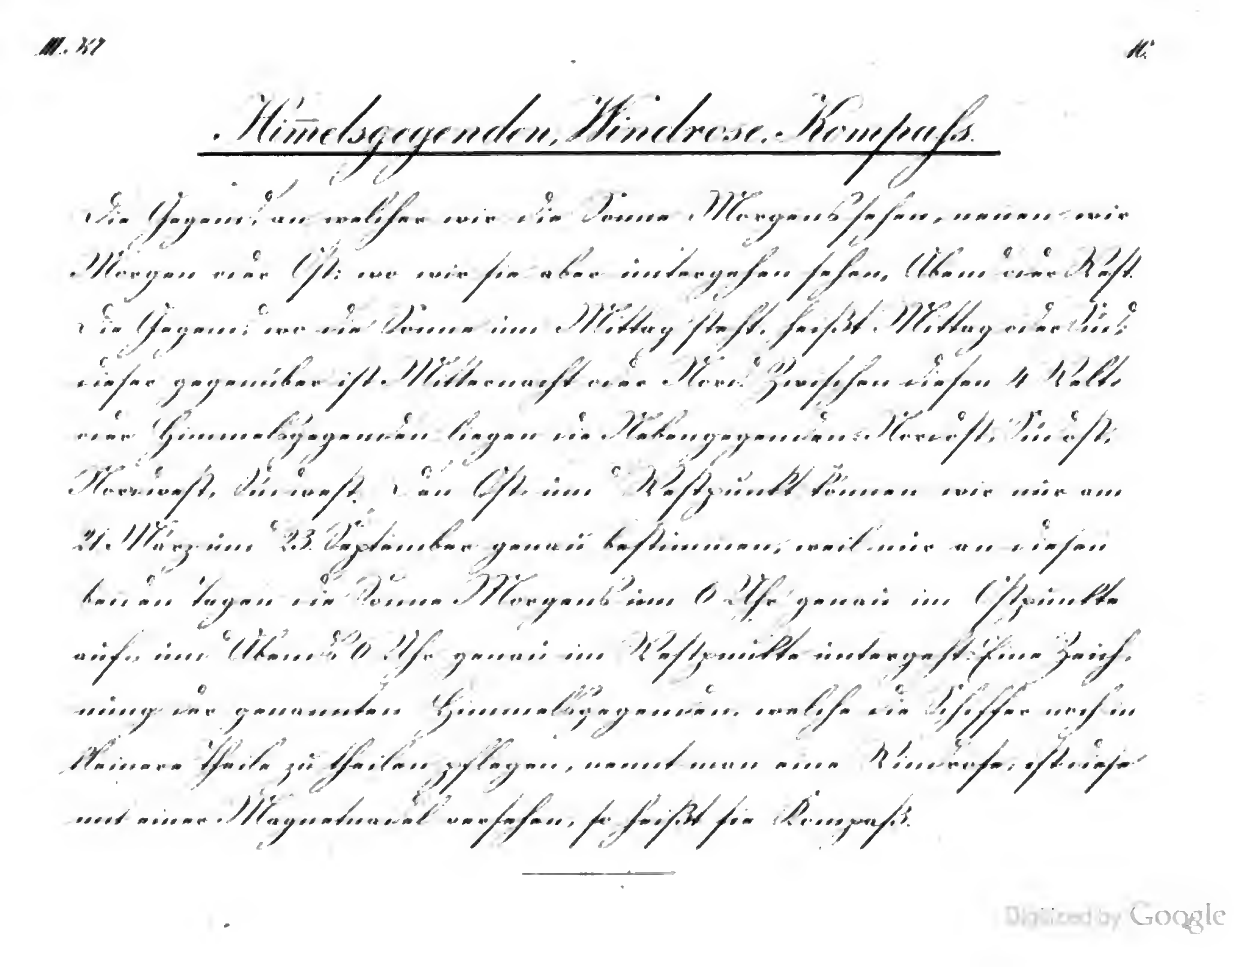 III. 87
16.
Him̅elsgegenden, Windrose, Kompaſs.
Die Gegend, an welcher wir die Sonne Morgens sehen, nennen wir
Morgen oder Ost; wo wir sie aber untergehen sehen, Abend oder West.
Die Gegend, wo die Sonne im Mittag steht, heißt Mittag oder Süd;
dieser gegenüber ist Mitternacht oder Nord. Zwischen diesen 4 Welt-
oder Himmelsgegenden liegen die Nebengegenden: Nordost, Südost,
Nordwest, Südwest. Den Ost- und Westpunkt können wir nur am
21. März und 23. September genau bestimmen, weil nur an diesen
beiden Tagen die Sonne Morgens um 6 Uhr genau im Ostpunkte
auf-, und Abends 6 Uhr genau im Westpunkte untergeht. Eine Zeich-
nung der genannten Himmelsgegenden, welche die Schiffer noch in
kleinere Theile zu theilen pflegen, nennt man eine Windrose; ist diese
mit einer Magnetnadel versehen, so heißt sie Kompaß.
Digitized by Google